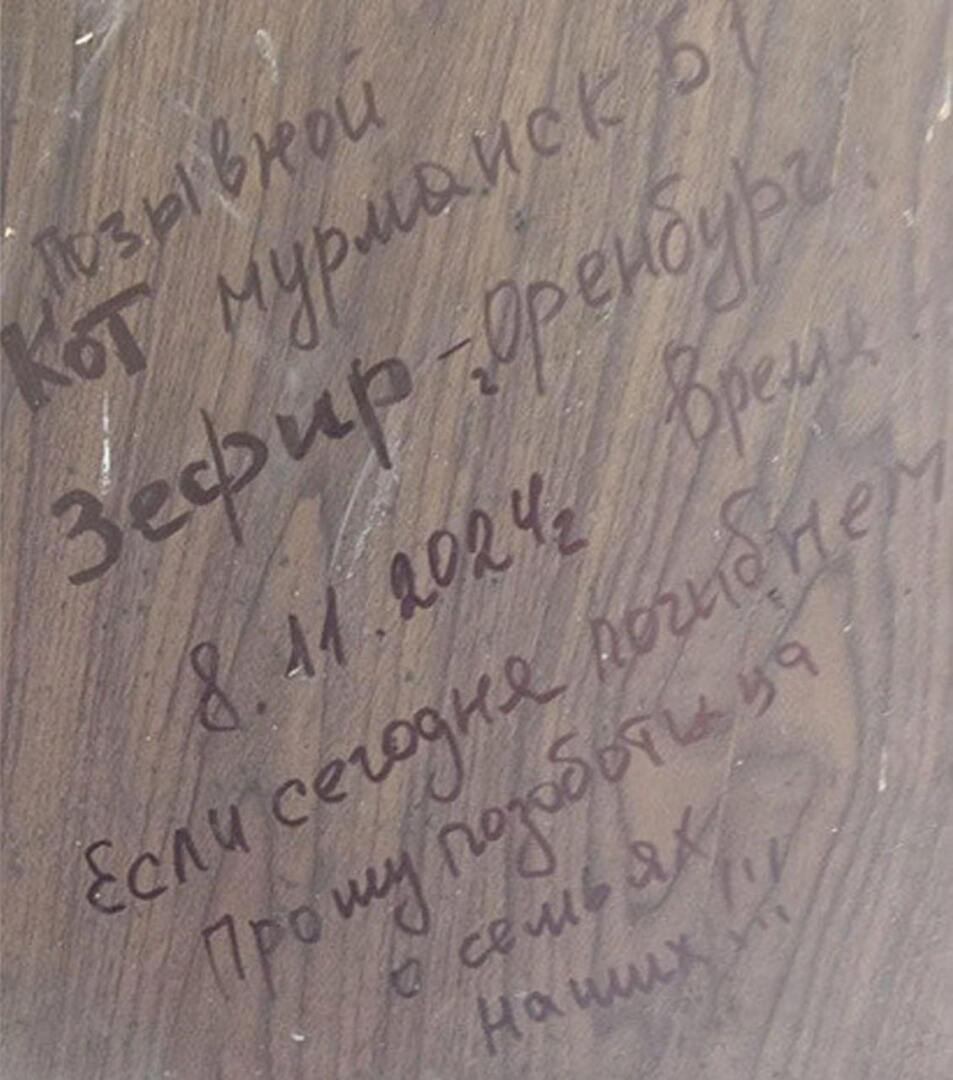 Позывной
Кот Мурманск 51
Зефир - г. Оренбург.
Время
8.11.2024г
Если сегодня погибнем
Прошу позаботица
о семьях
наших !!!